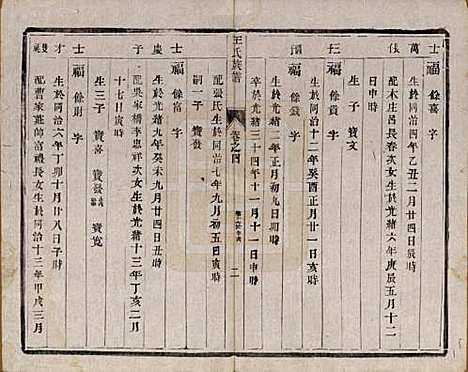 士福 餘喜 字
生於同治四年乙丑二月廿四日戌時
配木庄呂長春次女生於光緒六年庚辰五月十二
日申時
生子 寶文
餘貢 字
生於同治十二年癸酉正月廿一日亥時
餘 字
生於光緒二年正月初九日卯時
卒於光緒三十四年十一月十一日申時
王氏族譜
卷之四
一
配張氏生於同治七年九月初五日亥時
嗣一子 寶發
士福 餘富 字
生於光緒九年癸未九月廿四日酉時
配吳家橋李忠祥次女生於光緒十三年丁亥二月
十七日寅時
生三子 寶喬 寶發 寶寬
士福 餘財 字
生於同治六年丁卯十月廿八日子時
配曹家莊帥富禮長女生於同治十三年甲戌三月